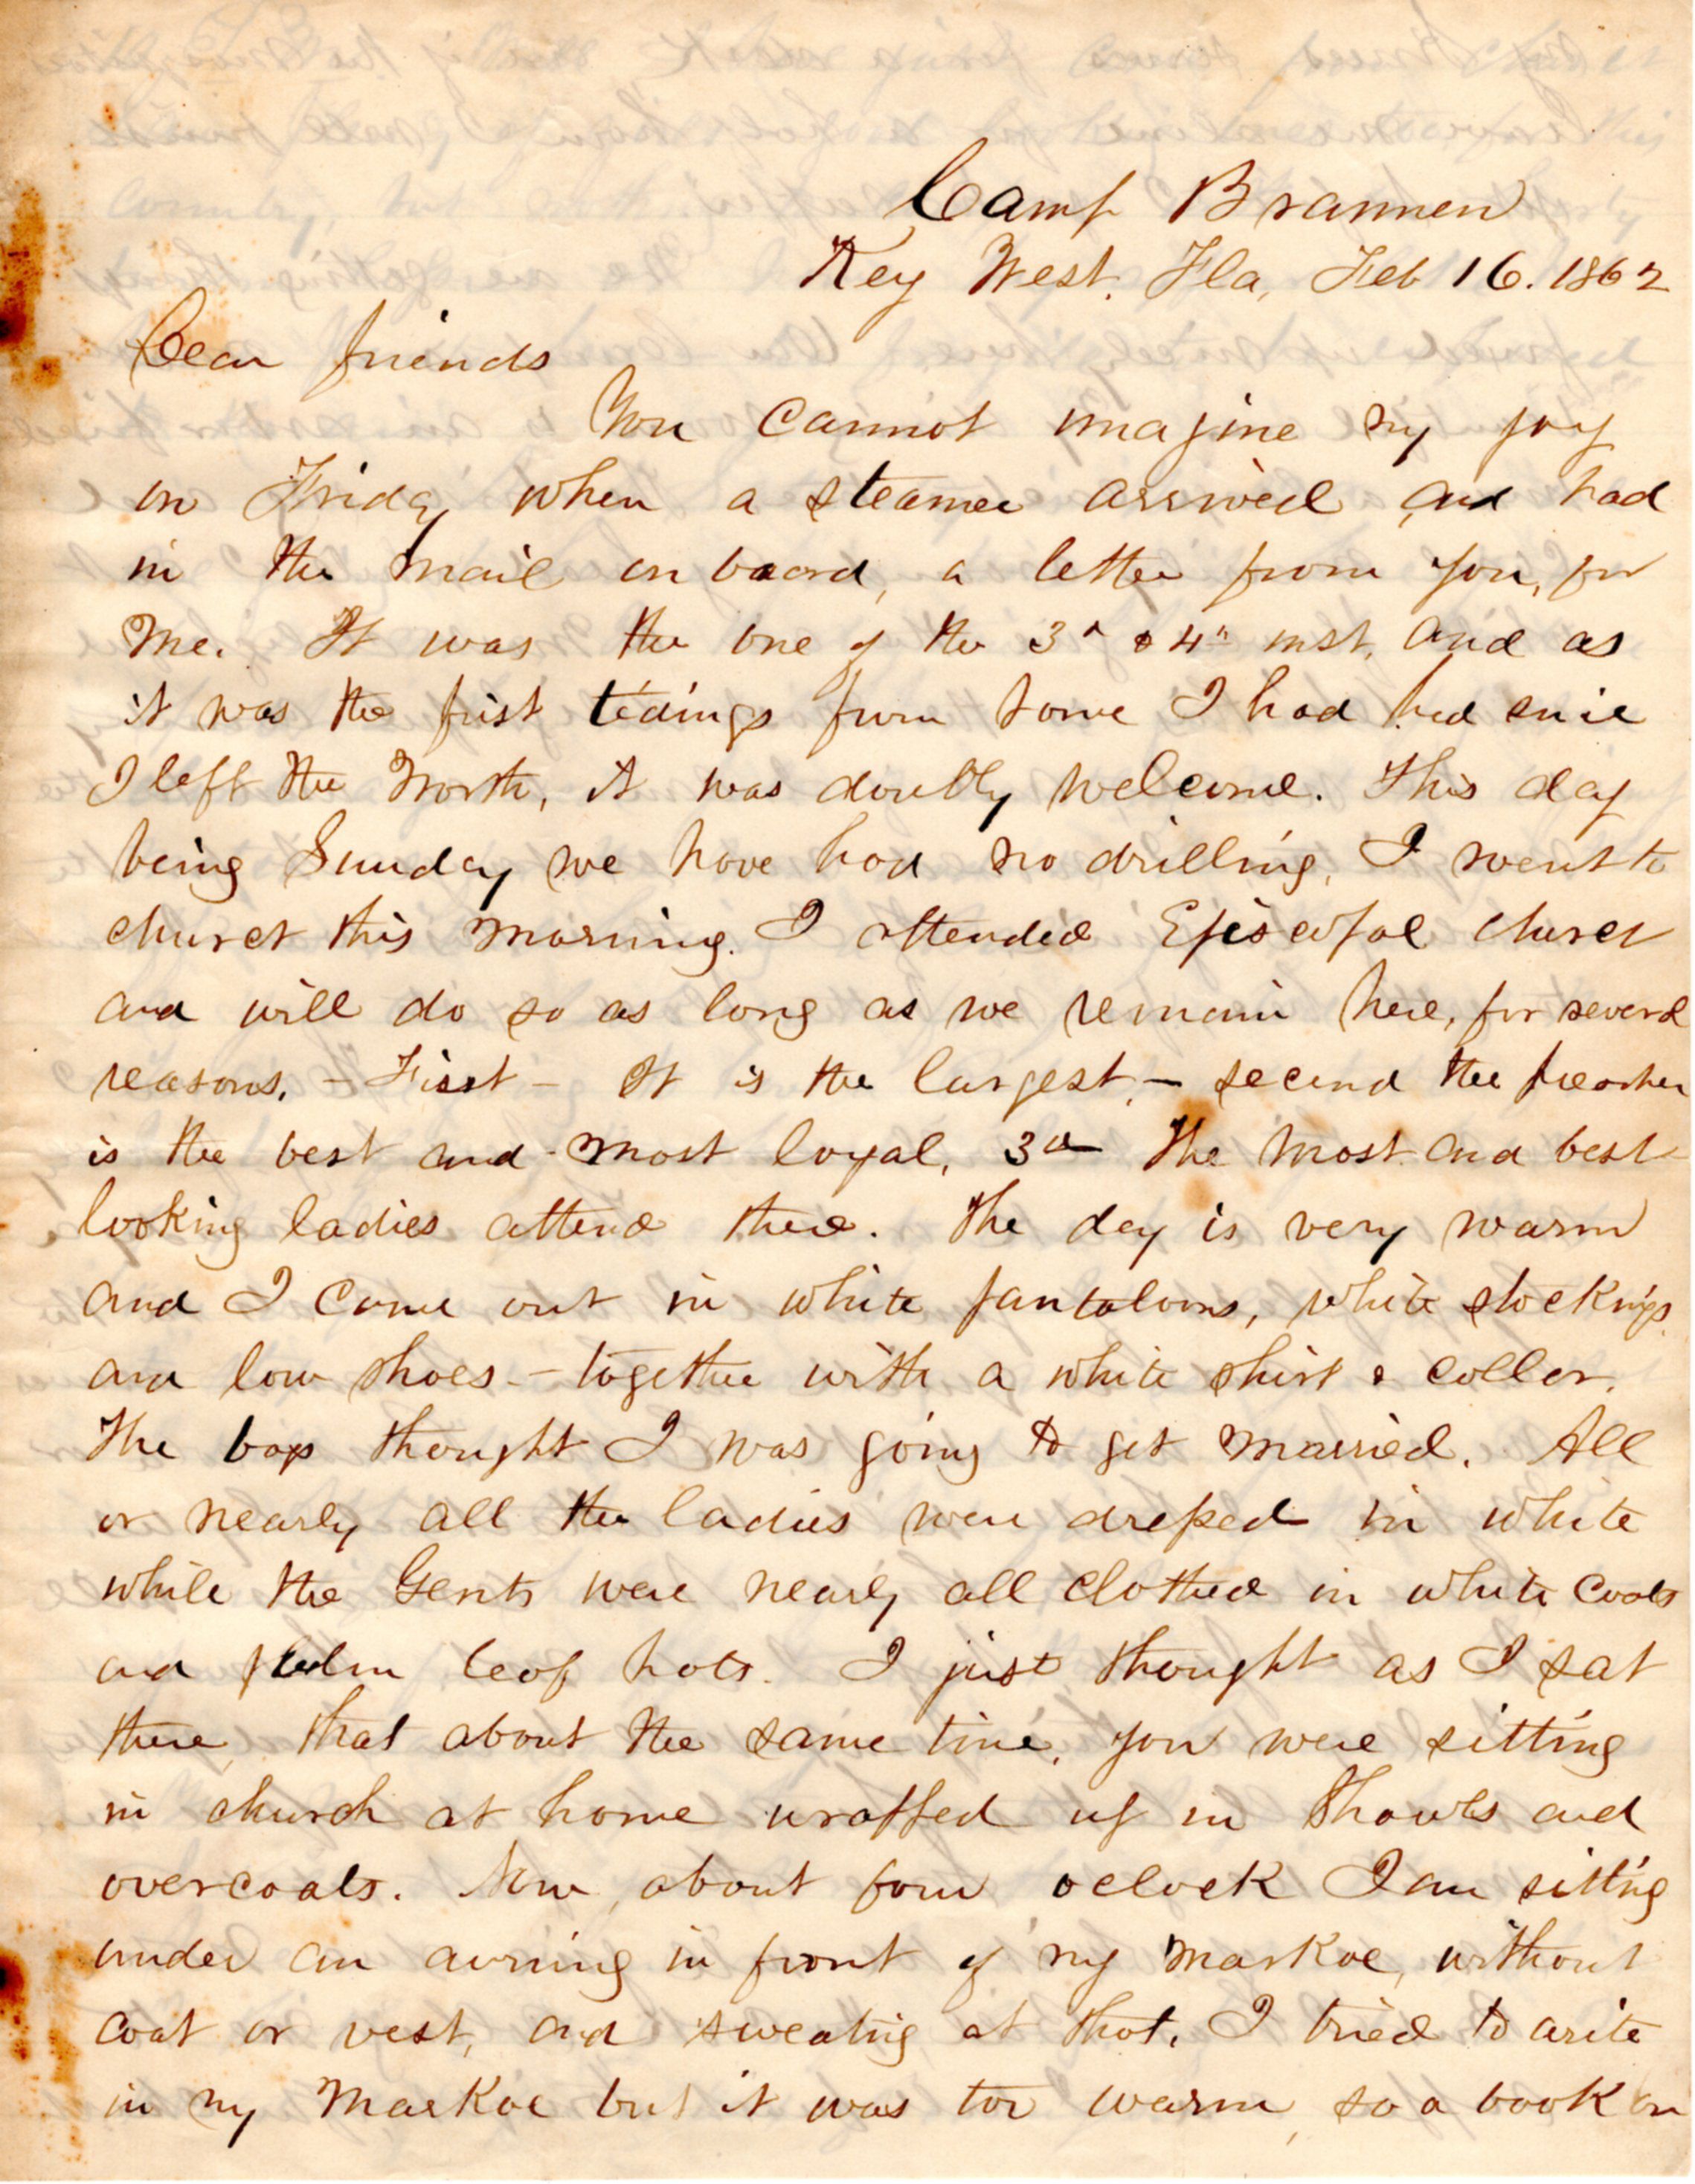 Camp Brannen
Key West. Fla, Feb 16. 1862
Dear friends
You cannot imagine my joy
on Friday when a steamer arrived and had
in the mail on board, a letter from you, for
me. It was the one of the 3d & 4th inst. and as
it was the first tidings from home I had had since
I left the North, it was doubly welcome. This day
being Sunday we have had no drilling, I went to
church this morning. I attended Episcopal church
and will do so as long as we remain here, for several
reasons. - First - It is the largest, - second the preacher
is the best and most loyal, 3d The most and best
looking ladies attend there. The day is very warm
and I came out in white pantaloons, white stockings
and low shoes - together with a white shirt & coller.
The boys thought I was going to get married. All
or nearly all the ladies were dressed in white
while the Gents were nearly all clothed in white coats
and palm leaf hats. I just thought as I sat
there, that about the same time, you were sitting
in church at home wrapped up in shawls and
overcoats. Now, about four oclock I am sitting
under an awning in front of my Markee, without
coat or vest, and sweating at that. I tried to write
in my Markee but it was too warm, so a book on